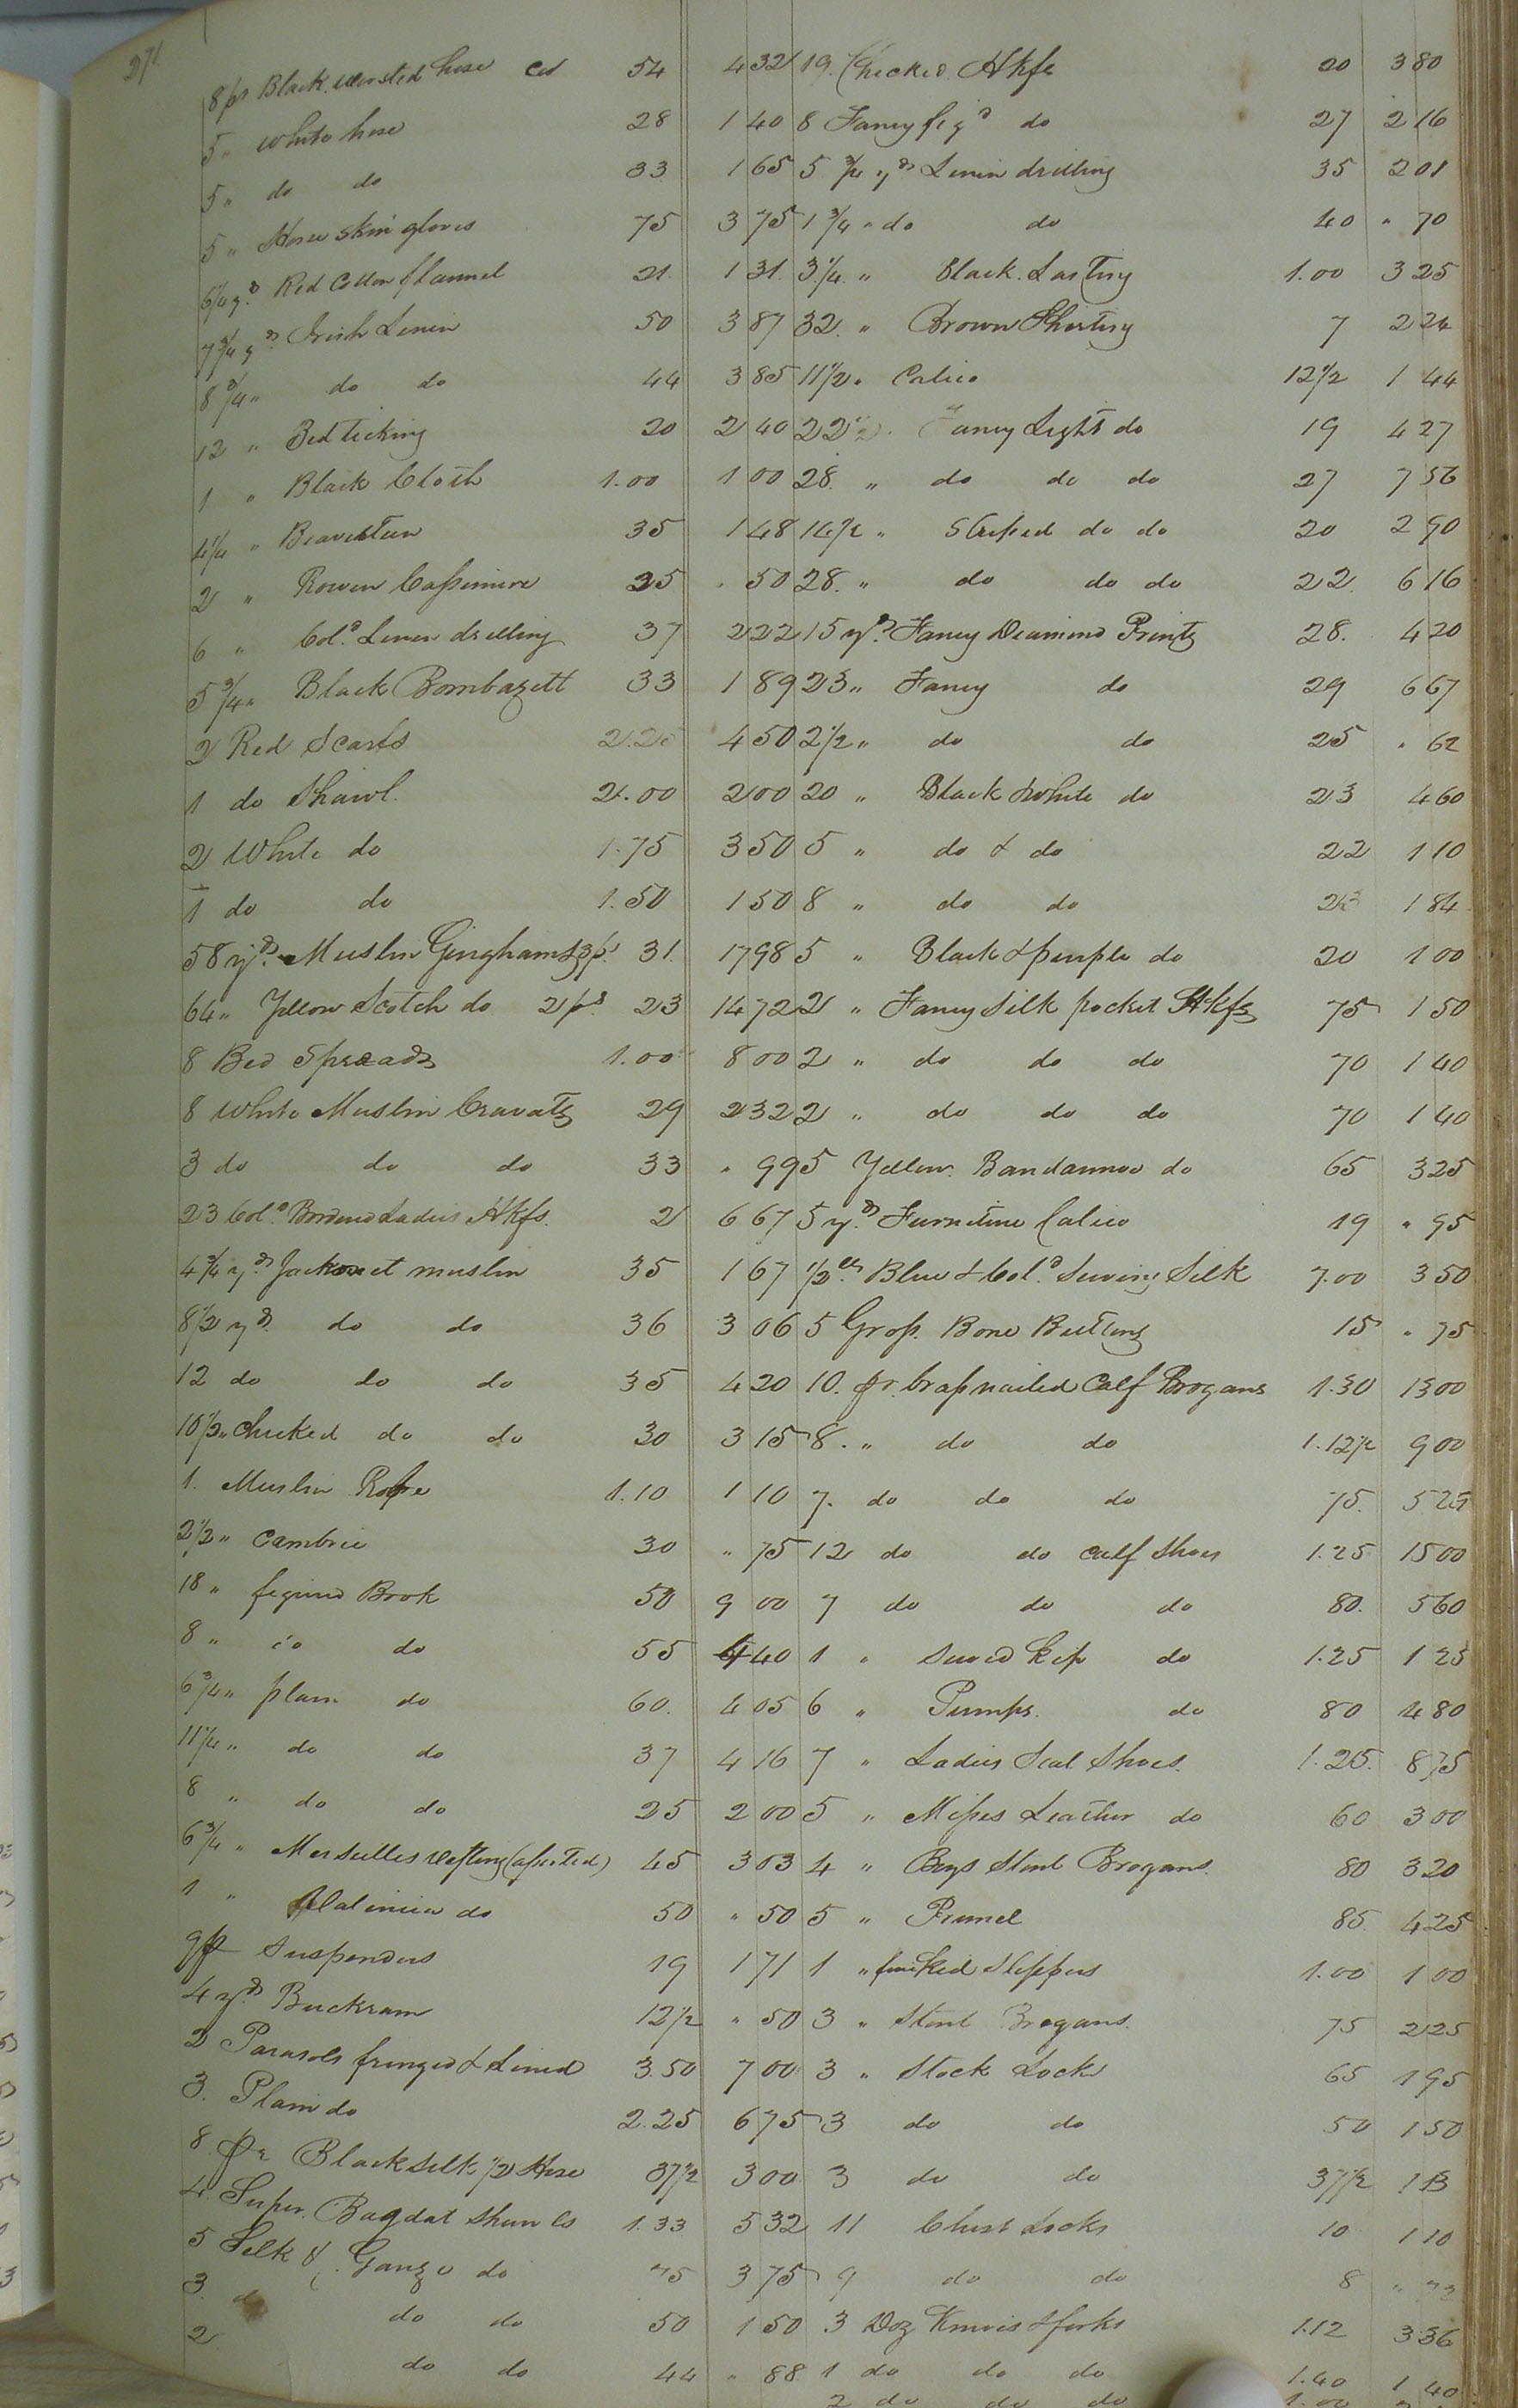 271
8 pr Black worsted hose Cts 54 4 32
5 " White hose 28 1 40
5 " do do 33 1 65
5 " Horse skin gloves 75 3 75
6 1/4 yds Red Cotton flannel 21 1 31
7 3/4 yds Irish Linin 50 3 87
8 3/4 " do do 44 3 85
12 " Bed ticking 20 2 40
1 " Black Cloth 1.00 1 00
4 1/4 " Beaverteen 35 1 48
2 " Rowen Cassimere 25 " 50
6 " Cold Linen drilling 37 2 22
5 3/4 " Black Bombazett 33 1 89
2 Red Scarfs 2.25 4 50
1 do Shawl 2.00 2 00
2 White do 1.75 3 50
1 do do 1.50 1 50
58 yds Muslin Ginghams 3 ps 31 17 98
64 " Yellow Scotch do 2 ps 23 14 72
8 Bed Spreads 1.00 8 00
8 White Muslin Cravats 29 2 32
3 do do do 33 " 99
23 Cold Bordered Ladies Hkfs 2 6 67
4 3/4 yds Jackonet muslin 35 1 67
8 1/2 yds do do 36 3 06
12 do do do 35 4 20
10 1/2 " Checked do do 30 3 15
1 Muslin Robe 1.10 1 10
2 1/2 " Cambric 30 " 75
18 " figured Book 50 9 00
8 " do do 55 4 40
6 3/4 " plain do 60 4 05
11 1/4 " do do 37 4 16
8 " do do 25 2 00
6 3/4 " Merseilles vesting (assorted) 45 3 03
1 " Valencia do 50 " 50
9 pr Suspenders 19 1 71
4 yds Buckram 12 1/2 " 50
2 Parasols fringed & Lined 3.50 7 00
3 Plain do 2.25 6 75
8 pr Black silk 1/2 Hose 37 1/2 3 00
4 Super Bagdat Shawls 1.33 5 32
5 Silk & Gauze do 75 3 75
3 do do do 50 1 50
2 do do 44 " 88
19 Checked Hkfs 20 3 80
8 Fancy figd do 27 2 16
5 3/4 yds Linin drilling 35 2 01
1 3/4 " do do 40 " 70
3 1/4 " Black Lasting 1.00 3 25
32 " Brown Shirting 7 2 24
11 1/2 " Calico 12 1/2 1 44
22 1/2 " Fancy Light do 19 4 27
28 " do do do 27 7 56
14 1/2 " Striped do do 20 2 90
28 " do do do 22 6 16
15 yds Fancy Diamond Prints 28 4 20
23 " Fancy do 29 6 67
2 1/2 " do do 25 " 62
20 " Black & White do 23 4 60
5 " do & do 22 1 10
8 " do do 23 1 84
5 " Black & purple do 20 1 00
2 " Fancy Silk pocket Hkfs 75 1 50
2 " do do do 70 1 40
2 " do do do 70 1 40
5 Yellow Bandannoe do 65 3 25
5 yds Furniture Calico 19 " 95
1/2 lb Blue & Cold Sewing Silk 7.00 3 50
5 Gross Bone Buttons 15 " 75
10 pr brass nailed Calf Brogans 1.30 13 00
8 " do do 1.12 1/2 9 00
7 do do do 75 5 25
12 do do calf Shoes 1.25 15 00
7 do do do 80 5 60
1 " Sewed Kip do 1.25 1 25
6 " Pumps do 80 4 80
7 " Ladies Seal Shoes 1.25 8 75
5 " Misses Leather do 60 3 00
4 " Boys Stout Brogans 80 3 20
5 " Prunel 85 4 25
1 " Slippers 1.00 1 00
3 " Stout Brogans 75 2 25
3 " Stock Locks 65 1 95
3 do do 50 1 50
3 do do 37 1/2 1 13
11 Chest Locks 10 1 10
9 do do 8 " 72
3 Doz Knives & forks 1.12 3 36
1 do do do 1.40 1 40
2 do do do 1.00